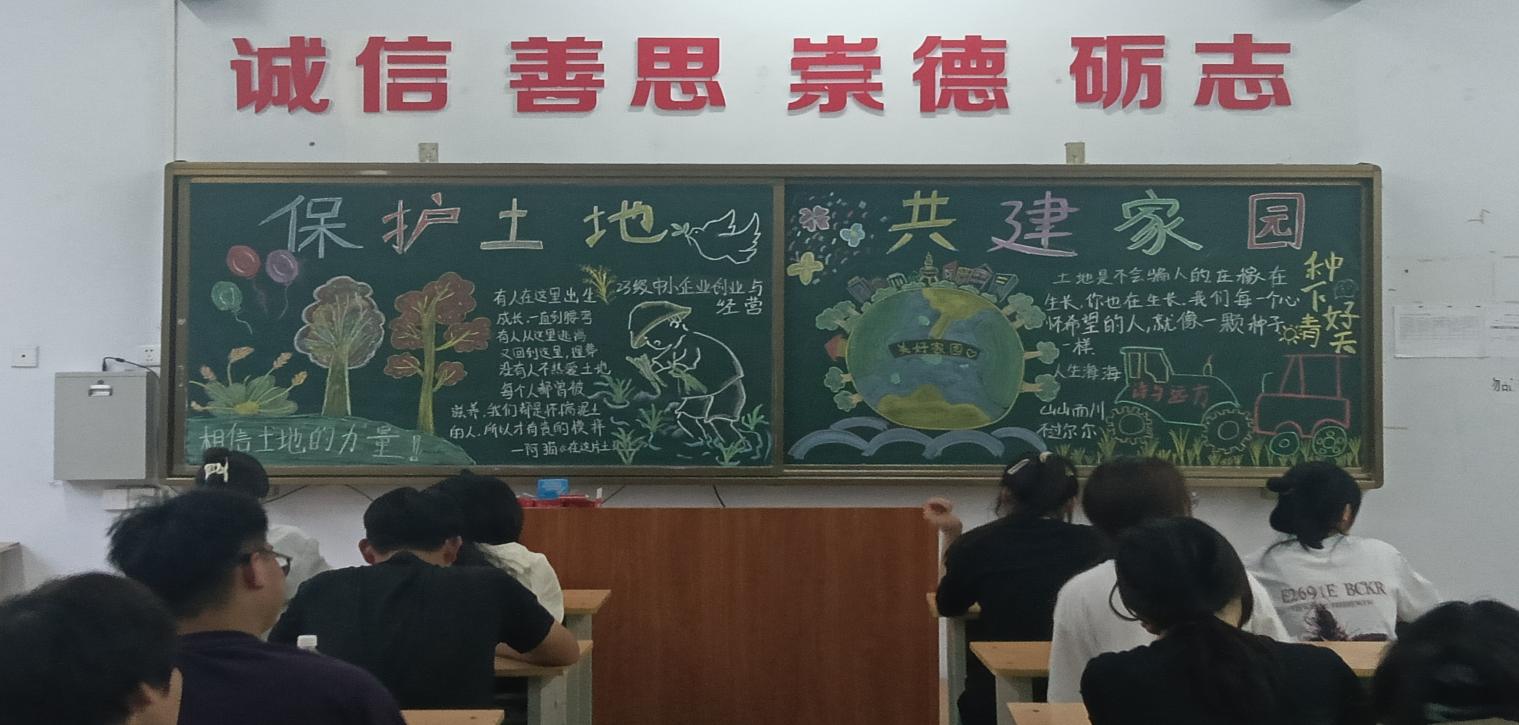 诚信 善思 崇德 砺志
保护土地
共建家园
23级中小企业创业与
经营
有人在这里出生
成长,一直到腰弯
有人从这里逃离
又回到这里,埋葬
没有人不热爱土地
每个人都曾被
滋养,我们都是怀揣泥土
的人,所以才有贵的模样
—阿
在这片土
相信土地的力量!!
美好家园
土地是不会骗人的庄稼在
生长,你也在生长.我们每一个心
怀希望的人,就像一颗种子
一样
人生海海
山山而川
不过尔尔
种下好
青天
诗与远方
E2691E BCKR